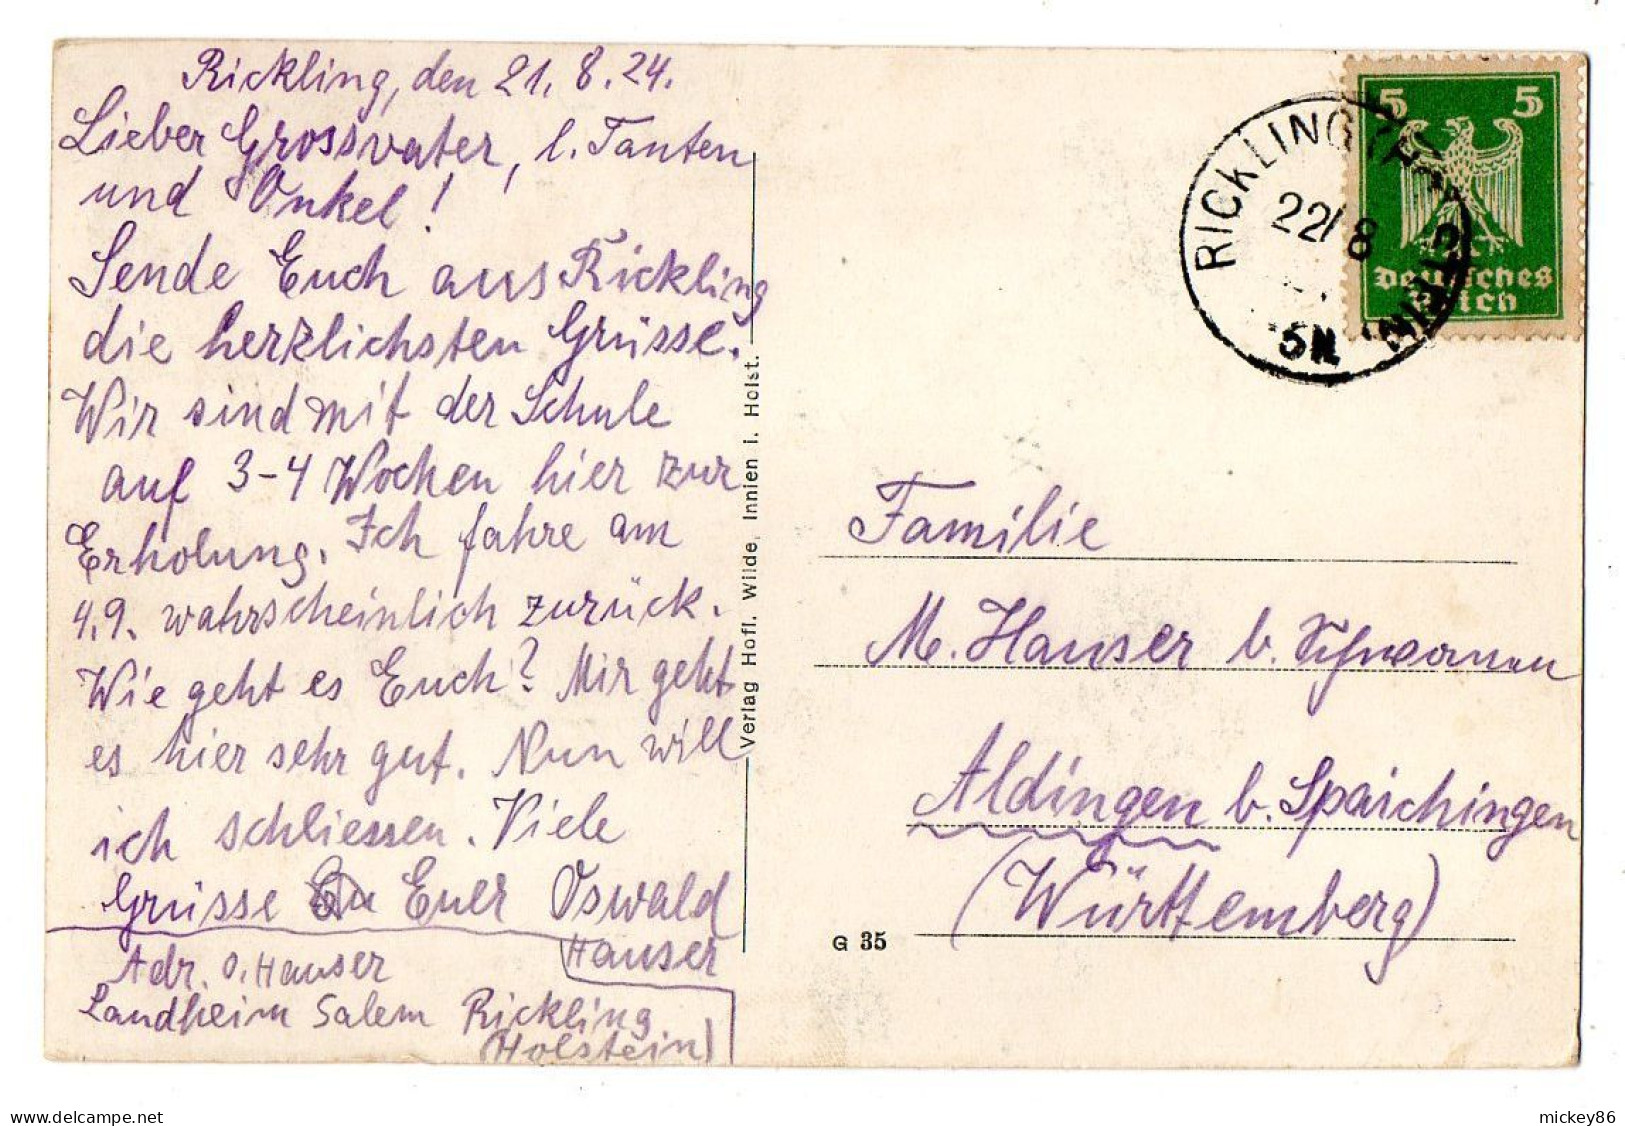 Rickling, den 21. 8. 24.
Lieber Grossvater, l. Tanten
und Onkel!
Sende Euch aus Rickling
die herzlichsten Grüsse.
Wir sind mit der Schule
auf 3-4 Wochen hier zur
Erholung. Ich fahre am
4.9. wahrscheinlich zurück.
Wie geht es Euch? Mir geht
es hier sehr gut. Nun will
ich schliessen. Viele
Grüsse Euer Oswald
Hauser
Adr. O. Hauser
Landheim Salem Rickling
(Holstein)
Verlag Hofl. Wilde, Innien i. Holst.
5 5
Deutsches
Reich
RICKLING
22/8
5N
Familie
M. Hauser b.
Aldingen b. Spaichingen
(Württemberg)
G 35
mickey86
www.delcampe.net